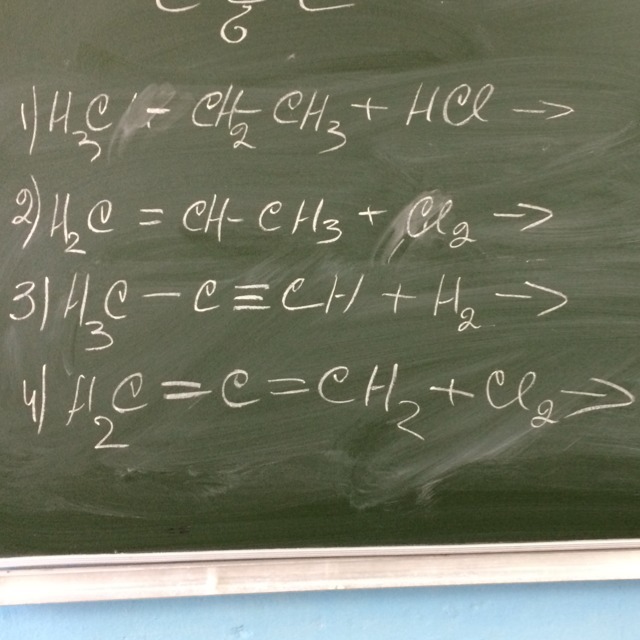 6
1) H₃C - CH₂-CH₃ + HCl →
2) H₂C = CH-CH₃ + Cl₂ →
3) H₃C - C ≡ CH + H₂ →
4) H₂C = C = CH₂ + Cl₂ →